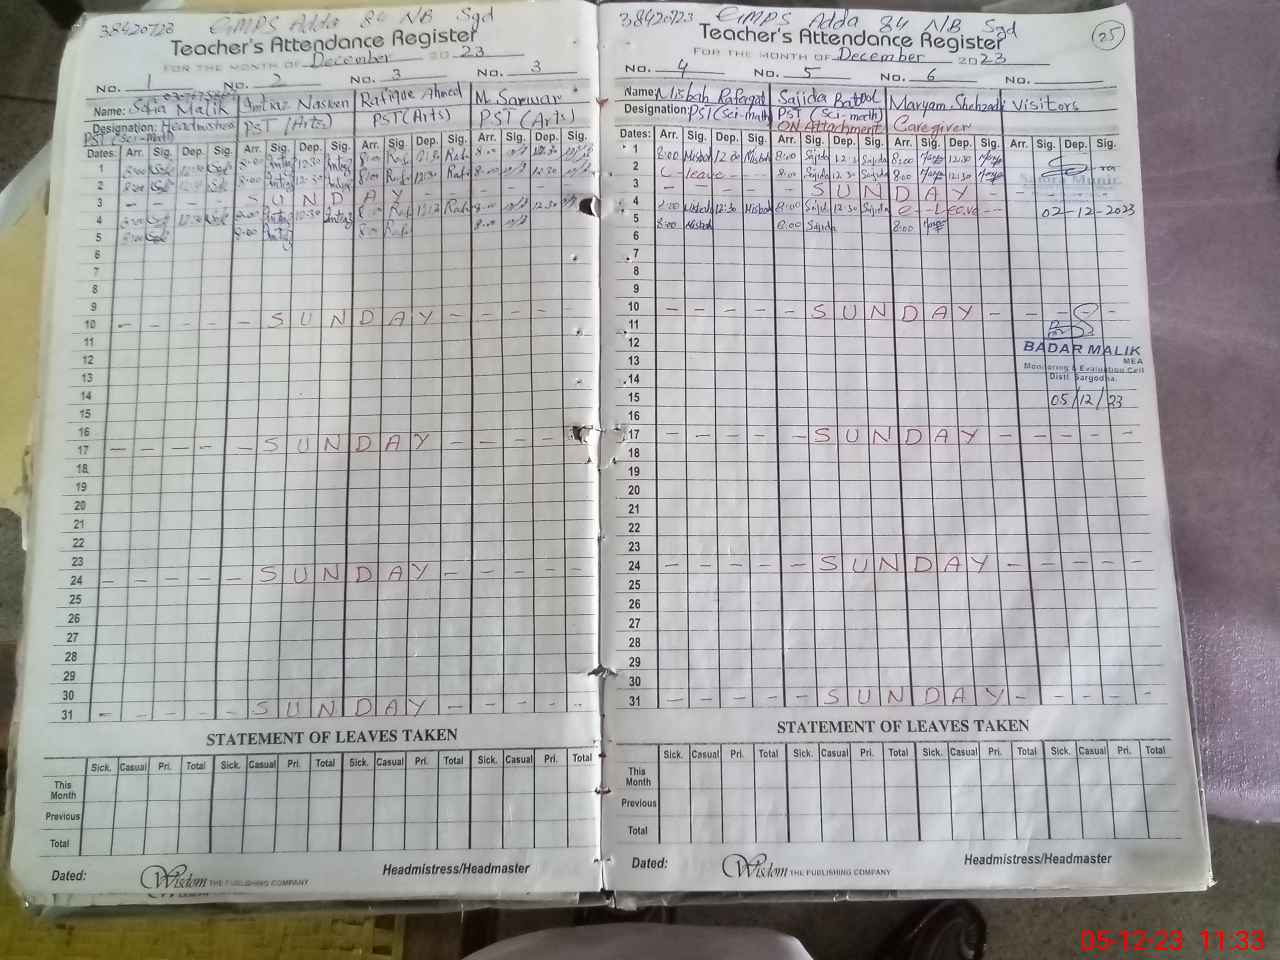 38420723 GMPS Adda 84 NB Sgd
Teacher's Attendance Register
FOR THE MONTH OF December 2023
No. 1 No. 2 No. 3 No. 3
Name: Sofia Malik Imtiaz Nasreen Rafique Ahmed M. Sarwar
Designation: Headmistress PST (Arts) PST (Arts) PST (Arts)
PST (Sci-math)
Dates: Arr. Sig. Dep. Sig. Arr. Sig. Dep. Sig. Arr. Sig. Dep. Sig. Arr. Sig. Dep. Sig.
1 8:00 12:30 8:00 12:30 8:00 12:30 8:00 12:30
2 8:00 12:30 8:00 12:30 8:00 12:30 8:00 12:30
3 - - - - SUNDAY
4 8:00 12:30 8:00 12:30 8:00 8:00 12:30
5 8:00 8:00 8:00 8:00
6
7
8
9
10 - - - - - SUNDAY - - - - -
11
12
13
14
15
16
17 - - - - - SUNDAY - - - - -
18
19
20
21
22
23
24 - - - - - SUNDAY - - - - -
25
26
27
28
29
30
31 - - - - - SUNDAY - - - - -
STATEMENT OF LEAVES TAKEN
Sick. Casual Pri. Total Sick. Casual Pri. Total Sick. Casual Pri. Total Sick. Casual Pri. Total
This Month
Previous
Total
Headmistress/Headmaster
Dated:
Wisdom THE PUBLISHING COMPANY
38420723 GMPS Adda 84 NB Sgd
25
Teacher's Attendance Register
FOR THE MONTH OF December 2023
No. 4 No. 5 No. 6 No.
Name: Misbah Rafaqat Sajida Batool Maryam Shehzadi Visitors
Designation: PST (Sci-math) PST (Sci-math) Caregiver
ON Attachment
Dates: Arr. Sig. Dep. Sig. Arr. Sig. Dep. Sig. Arr. Sig. Dep. Sig. Arr. Sig. Dep. Sig.
1 8:00 Misbah 12:00 Misbah 8:00 Sajida 12:30 Sajida 8:00 12:30
2 C-leave - - - 8:00 Sajida 12:30 Sajida 8:00 12:30
3 - - - - - SUNDAY -
4 8:00 Misbah 12:30 Misbah 8:00 Sajida 12:30 Sajida C-Leave - - 02-12-2023
5 8:00 Misbah 8:00 Sajida 8:00
6
7
8
9
10 - - - - - SUNDAY - - - -
11
12
BADAR MALIK
MEA
13
Monitoring & Evaluation Cell
14
Distt. Sargodha.
15 05/12/23
16
17 - - - - - SUNDAY - - - - -
18
19
20
21
22
23
24 - - - - - SUNDAY - - - - -
25
26
27
28
29
30
31 - - - - - SUNDAY - - - - -
STATEMENT OF LEAVES TAKEN
Sick. Casual Pri. Total Sick. Casual Pri. Total Sick. Casual Pri. Total Sick. Casual Pri. Total
This Month
Previous
Total
Headmistress/Headmaster
Dated:
Wisdom THE PUBLISHING COMPANY
05-12-23 11:33